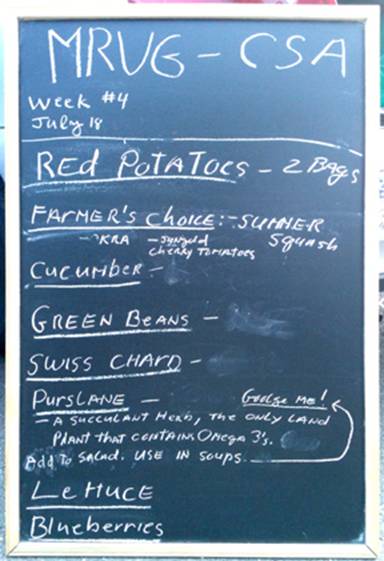 MRVG - CSA
Week #4
July 18
RED POTATOES - 2 BAGS
FARMER'S CHOICE: - SUMMER
Squash
- KRA - sungold
cherry tomatoes
CUCUMBER -
GREEN BEANS -
SWISS CHARD -
PURSLANE - Google me!
- A SUCCULANT Herb, THE ONLY LAND
PLANT THAT CONTAINS Omega 3's.
Add To Salad. USE IN SOUPS.
LeTTUCE
Blueberries